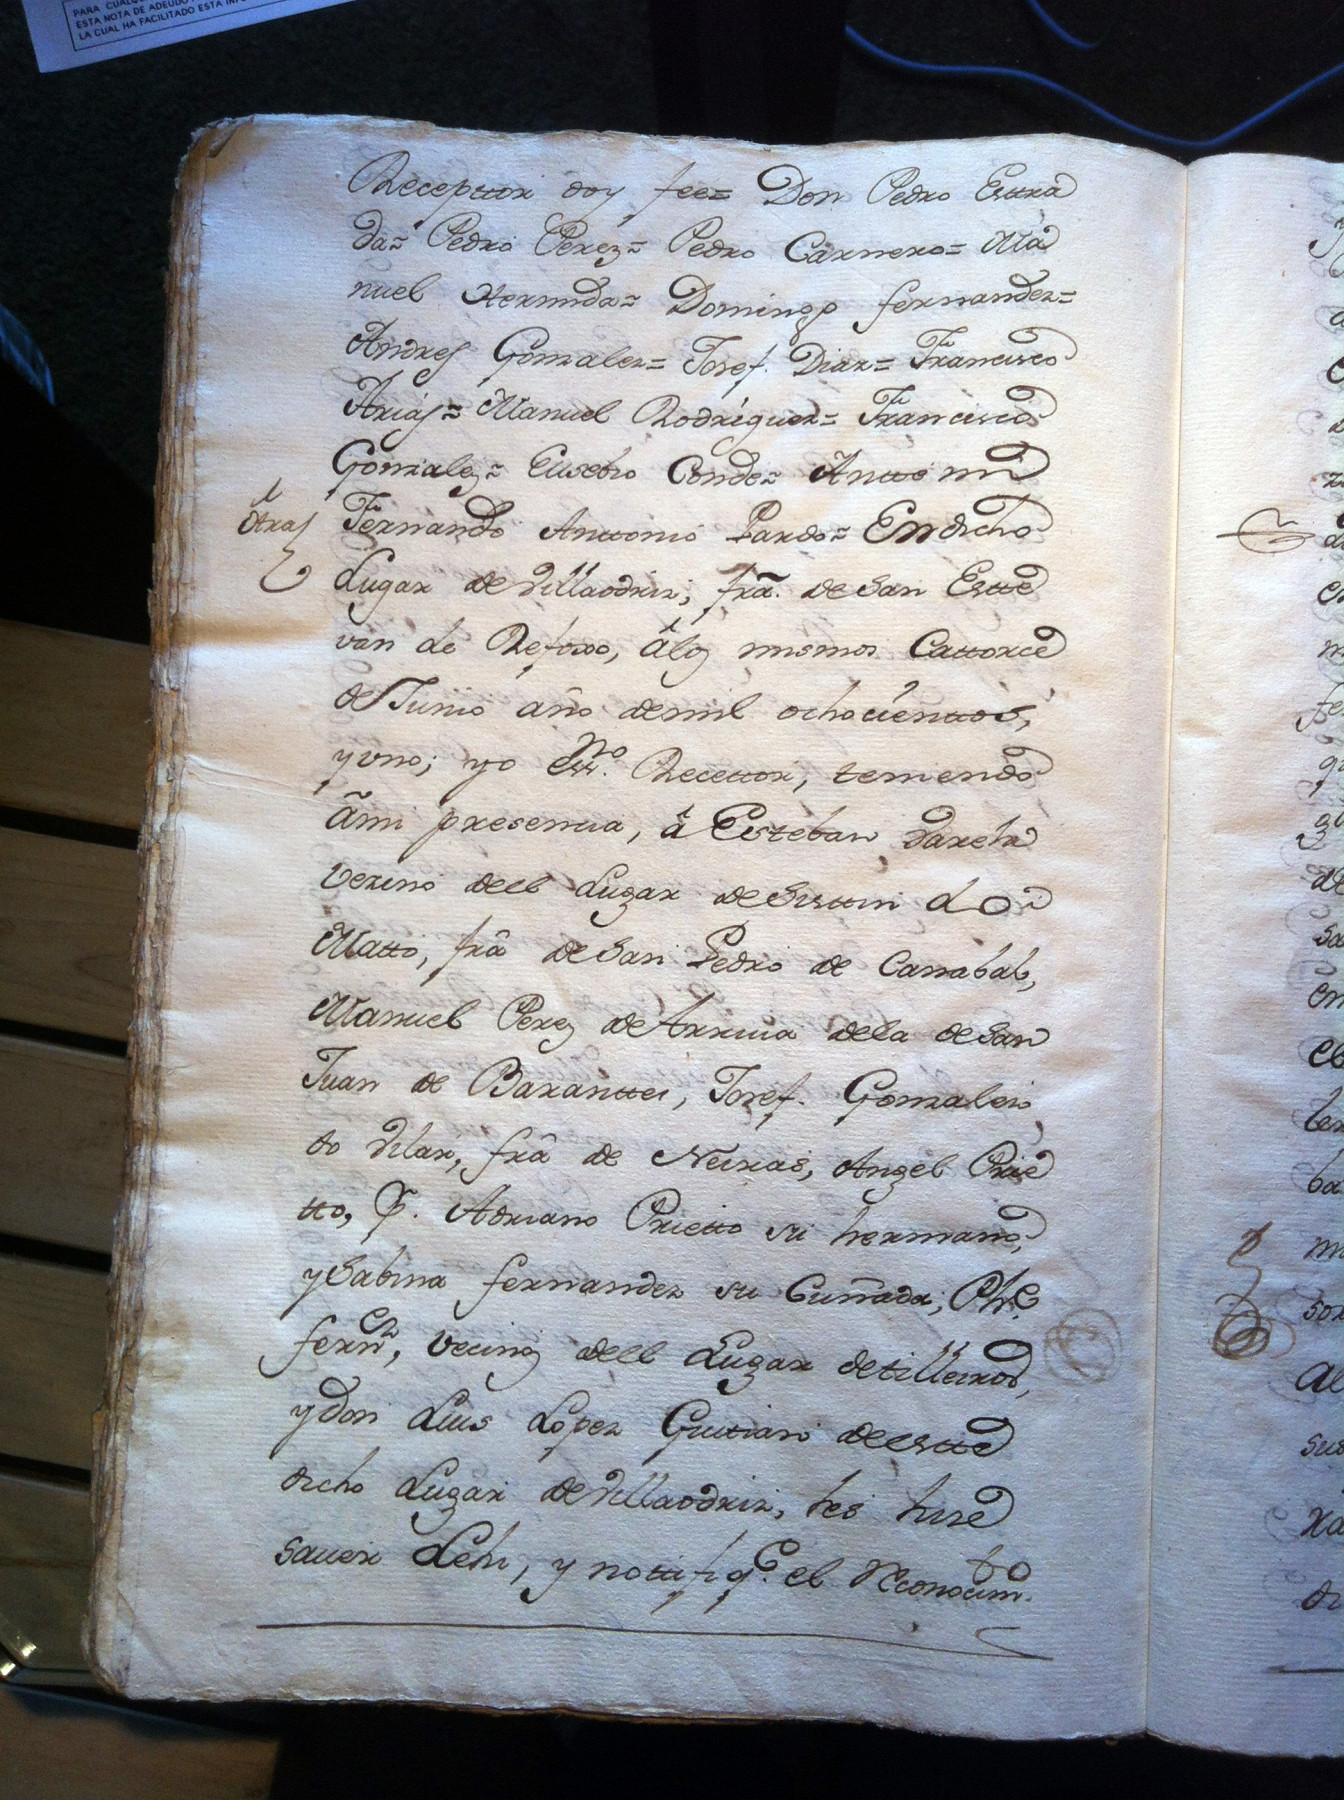 PARA CUALQU
ESTA NOTA DE ADEUDO
LA CUAL HA FACILITADO ESTA INFO
Receptor doy fee= Don Pedro Estra
da= Pedro Perez= Pedro Carnero= Ma
nuel Hermida= Domingo fernandez=
Andres Gonzalez= Josef. Diaz= Francisco
Arias= Manuel Rodriguez= Francisco
Gonzalez= Eusebio Conde= Antte mi
Fernando Anttonio Pardo= En dicho
otras
Lugar de Villaodriz; frâ. de San Estte
van de Refoxo, â los mismos Cattorce
de Junio año de mil ochocienttos,
y uno; yo essno. Recettor, teniendo
âmi presencia, â Esteban
Vecino dell Lugar de Do
Matto, frâ de San Pedro de Carrabal,
Manuel Perez de Arruia dela de San
Juan de Baranttes, Josef. Gonzalez
do Vilar, frâ de Neiras, Angel Prie
tto, Adriano Prietto su hermano,
y Sabina fernandez su Cuñada,
fernz, vecinos dell Lugar de tilleiros,
y don Luis Lopez Guitian de estte
dicho Lugar de Villaodriz, les hize
saver Lehi, y nottifiqe. el Reconocimto.